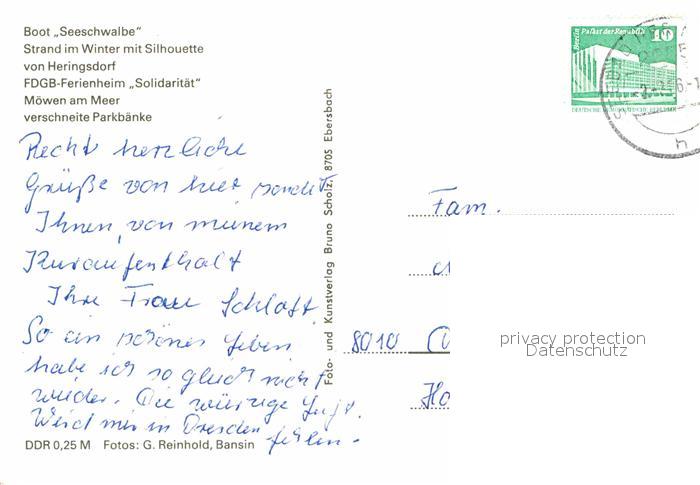 Boot „Seeschwalbe“
Strand im Winter mit Silhouette
von Heringsdorf
FDGB-Ferienheim „Solidarität“
Möwen am Meer
verschneite Parkbänke
Recht herzliche
Grüße von hier sendet
Ihnen von meinem
Kuraufenthalt
Ihre Frau Schlaft
So ein schönes Leben
habe ich so gleich nicht
wieder. Die würzige Luft.
Wird mir in Dresden
fehlen.
DDR 0,25 M Fotos: G. Reinhold, Bansin
Foto- und Kunstverlag Bruno Scholz, 8705 Ebersbach
Berlin Palast der Republik
10
DEUTSCHE DEMOKRATISCHE REPUBLIK
Fam.
8010
privacy protection
Datenschutz
Ho